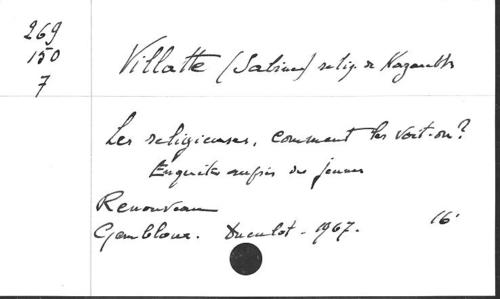 269
150
7
Villatte (Sabine) relig. de Nazareth
Les religieuses, comment les voit-on?
Enquêtes auprès des jeunes
Renouveau
Gembloux. Duculot - 1967. 16°